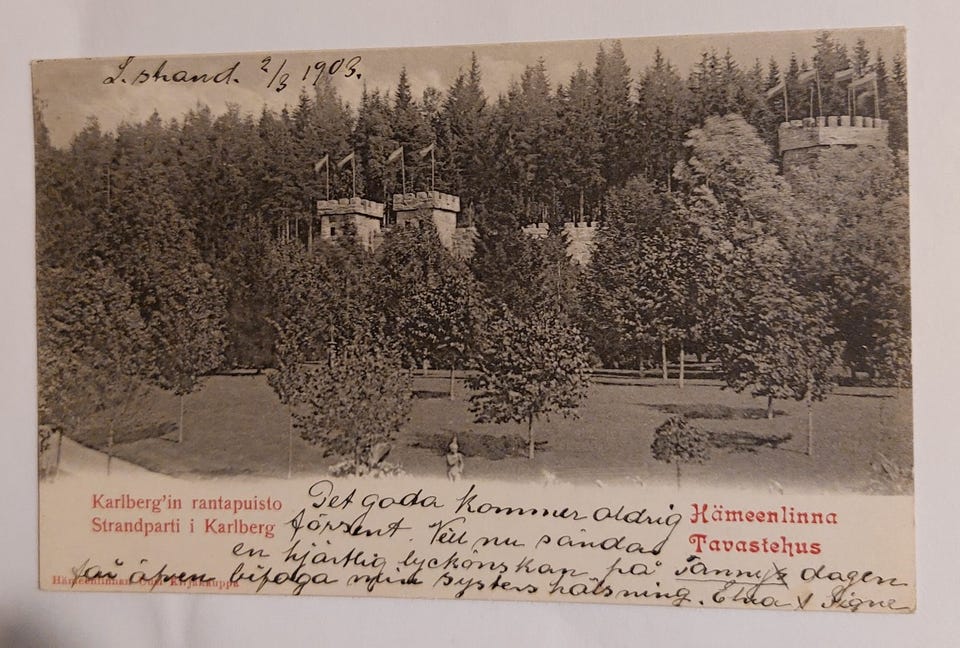 L. strand. 2/3 1903.
Karlberg'in rantapuisto
Strandparti i Karlberg
Hämeenlinna
Tavastehus
Hämeenlinnan Uusi Kirjakauppa
Det goda kommer aldrig
försent. Vill nu sända
en hjärtlig lyckönskan på Fanny's dagen
får äfven bifoga min systers hälsning. Elna & Signe